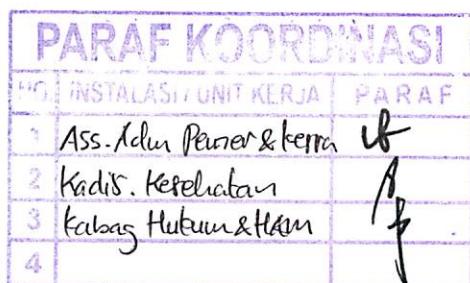 PARAF KOORDINASI
NO. INSTALASI / UNIT KERJA PARAF
1 Ass. Adm Pemer & kerra
2 Kadis. Kesehatan
3 Kabag Hukum & HAM
4